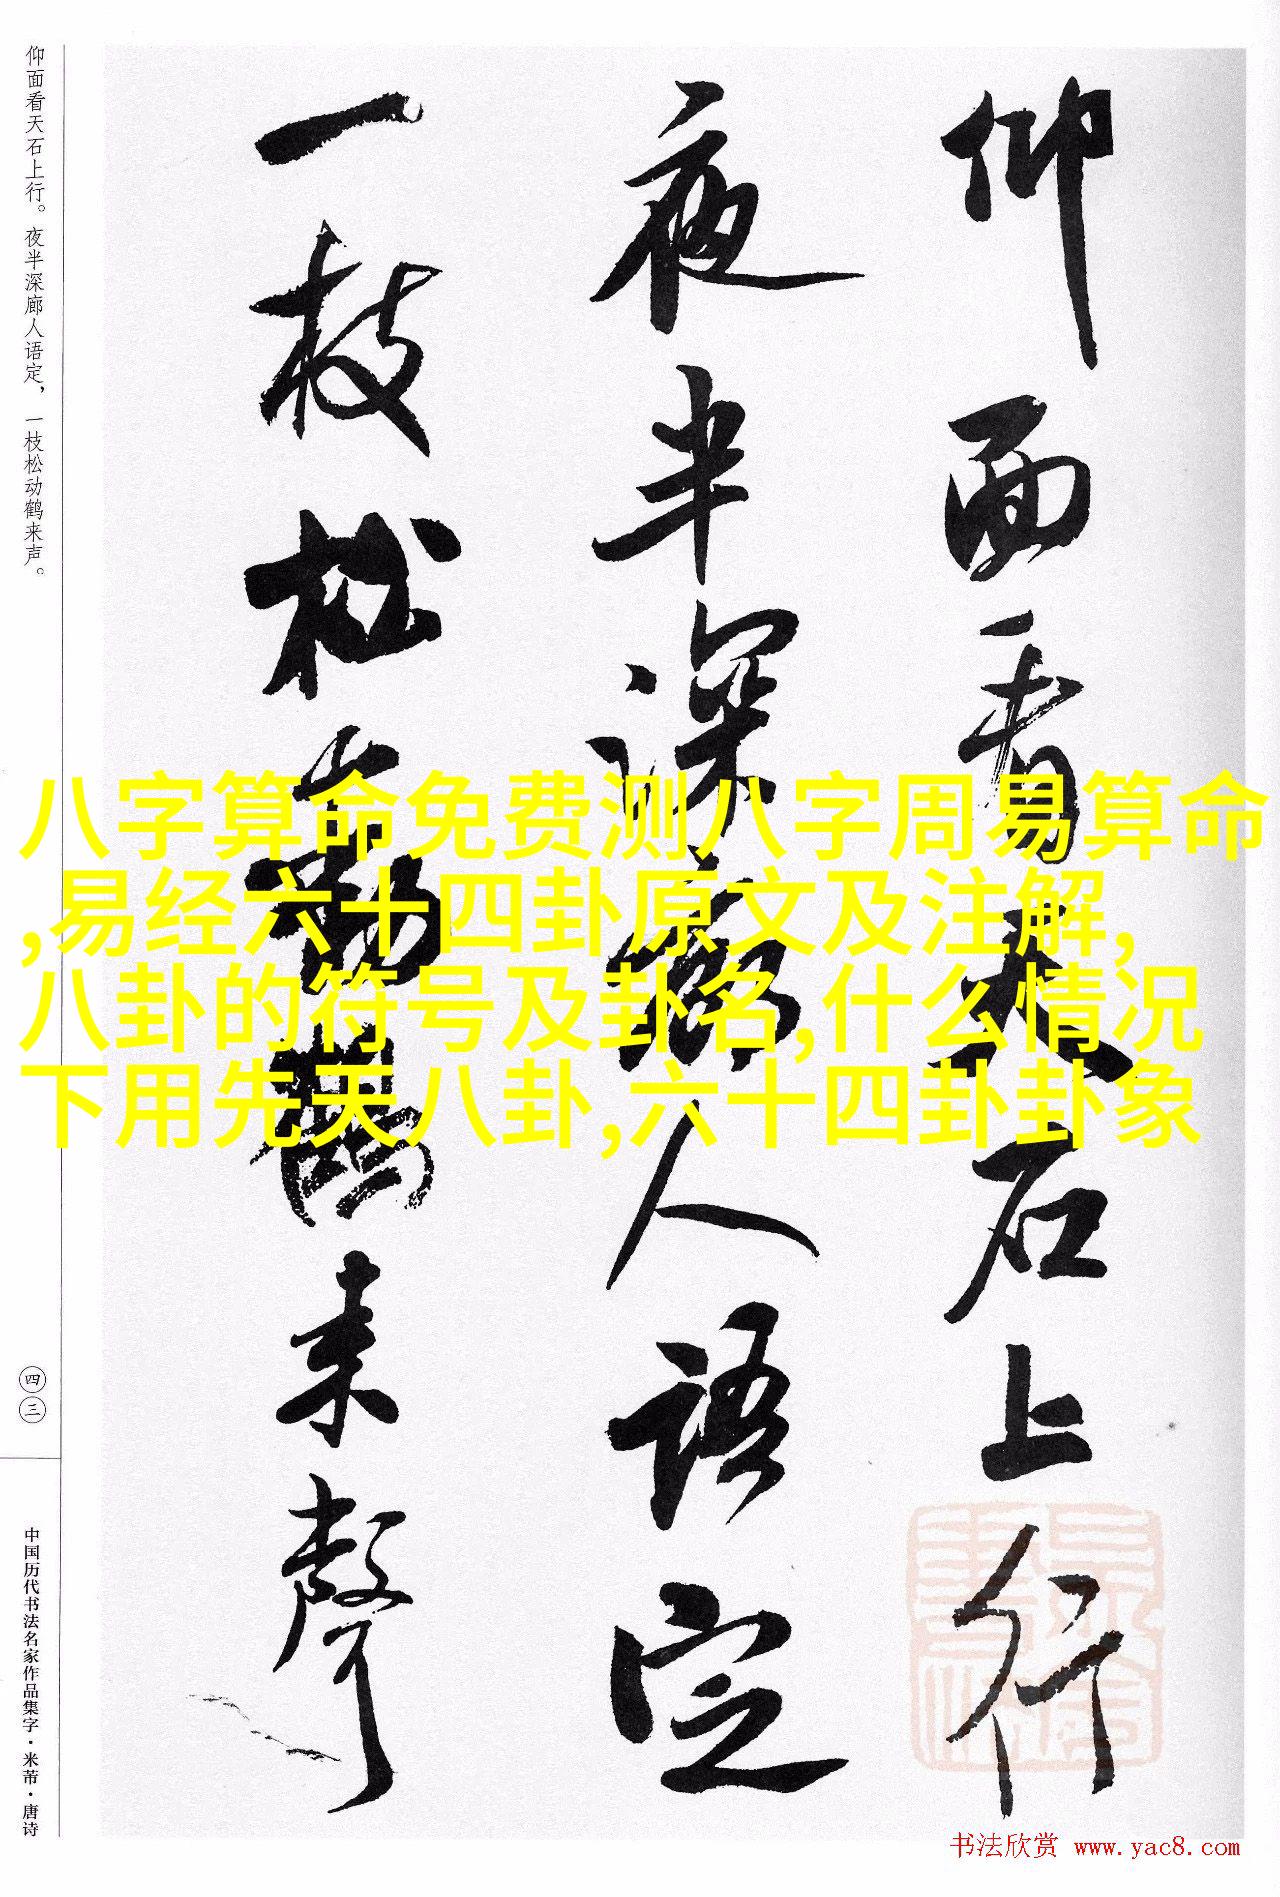 仰面看天石上行
夜半深廊人语定
一枝松动鹤来声
仰面看天石上行。夜半深廊人语定，一枝松动鹤来声。
四三
中国历代书法名家作品集字·米芾·唐诗
八字算命免费测八字周易算命
,易经六十四卦原文及注解,
八卦的符号及卦名,什么情况
下用先天八卦,六十四卦卦象
书法欣赏 www.yac8.com